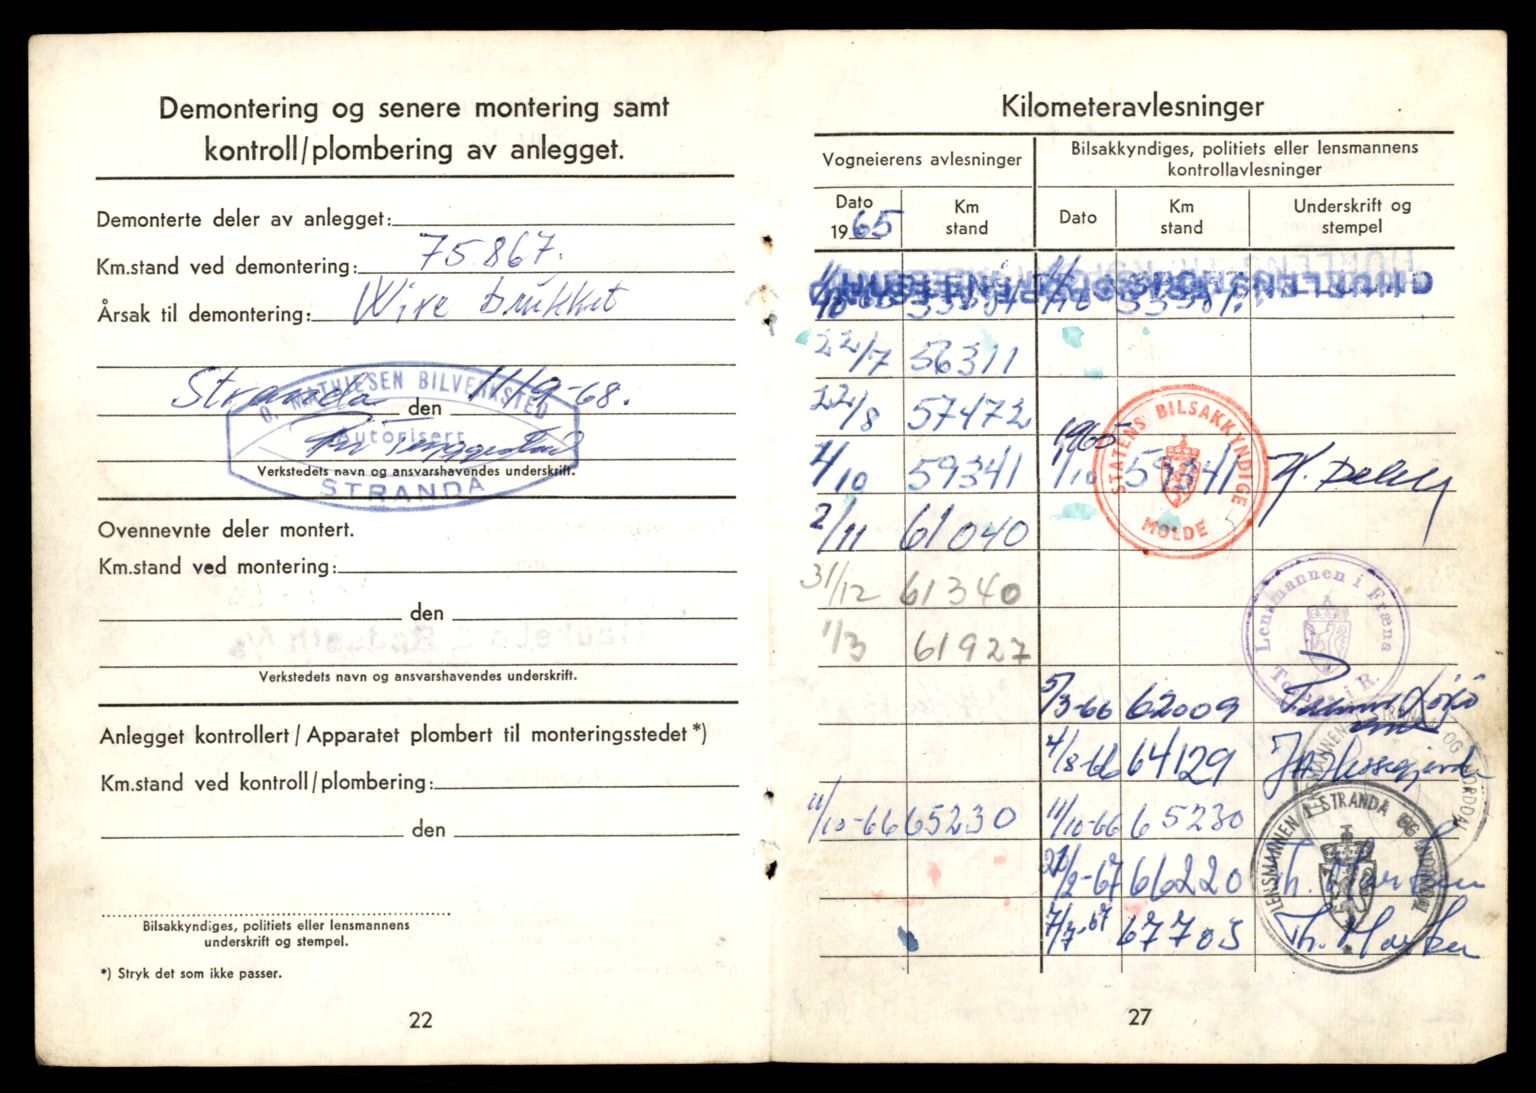 Demontering og senere montering samt
kontroll/plombering av anlegget.
Demonterte deler av anlegget:
Km.stand ved demontering: 75.867.
Årsak til demontering: Wire brukket
Stranda den 11/9-68.
O. MATHIESEN BILVERKSTED
Autorisert
STRANDA
Verkstedets navn og ansvarshavendes underskrift.
Ovennevnte deler montert.
Km.stand ved montering:
den
Verkstedets navn og ansvarshavendes underskrift.
Anlegget kontrollert/Apparatet plombert til monteringsstedet *)
Km.stand ved kontroll/plombering:
den
Bilsakkyndiges, politiets eller lensmannens
underskrift og stempel.
*) Stryk det som ikke passer.
22
Kilometeravlesninger
Vogneierens avlesninger
Bilsakkyndiges, politiets eller lensmannens
kontrollavlesninger
Dato
1965
Km
stand
Dato
Km
stand
Underskrift og
stempel
22/7 56311
22/8 57472
1/10 59341 1965 1/10 59341
STATENS BILSAKKYNDIGE
MOLDE
2/11 61040
31/12 61340
1/3 61927
Lensmannen i Fræna
5/3-66 62009
4/8-66 64129
11/10-66 65230 11/10-66 65230
LENSMANNEN I STRANDA OG NORDDAL
21/2-67 66220 Th. Morken
7/7-67 67703 Th. Morken
LENSMANNEN I STRANDA OG NORDDAL
27